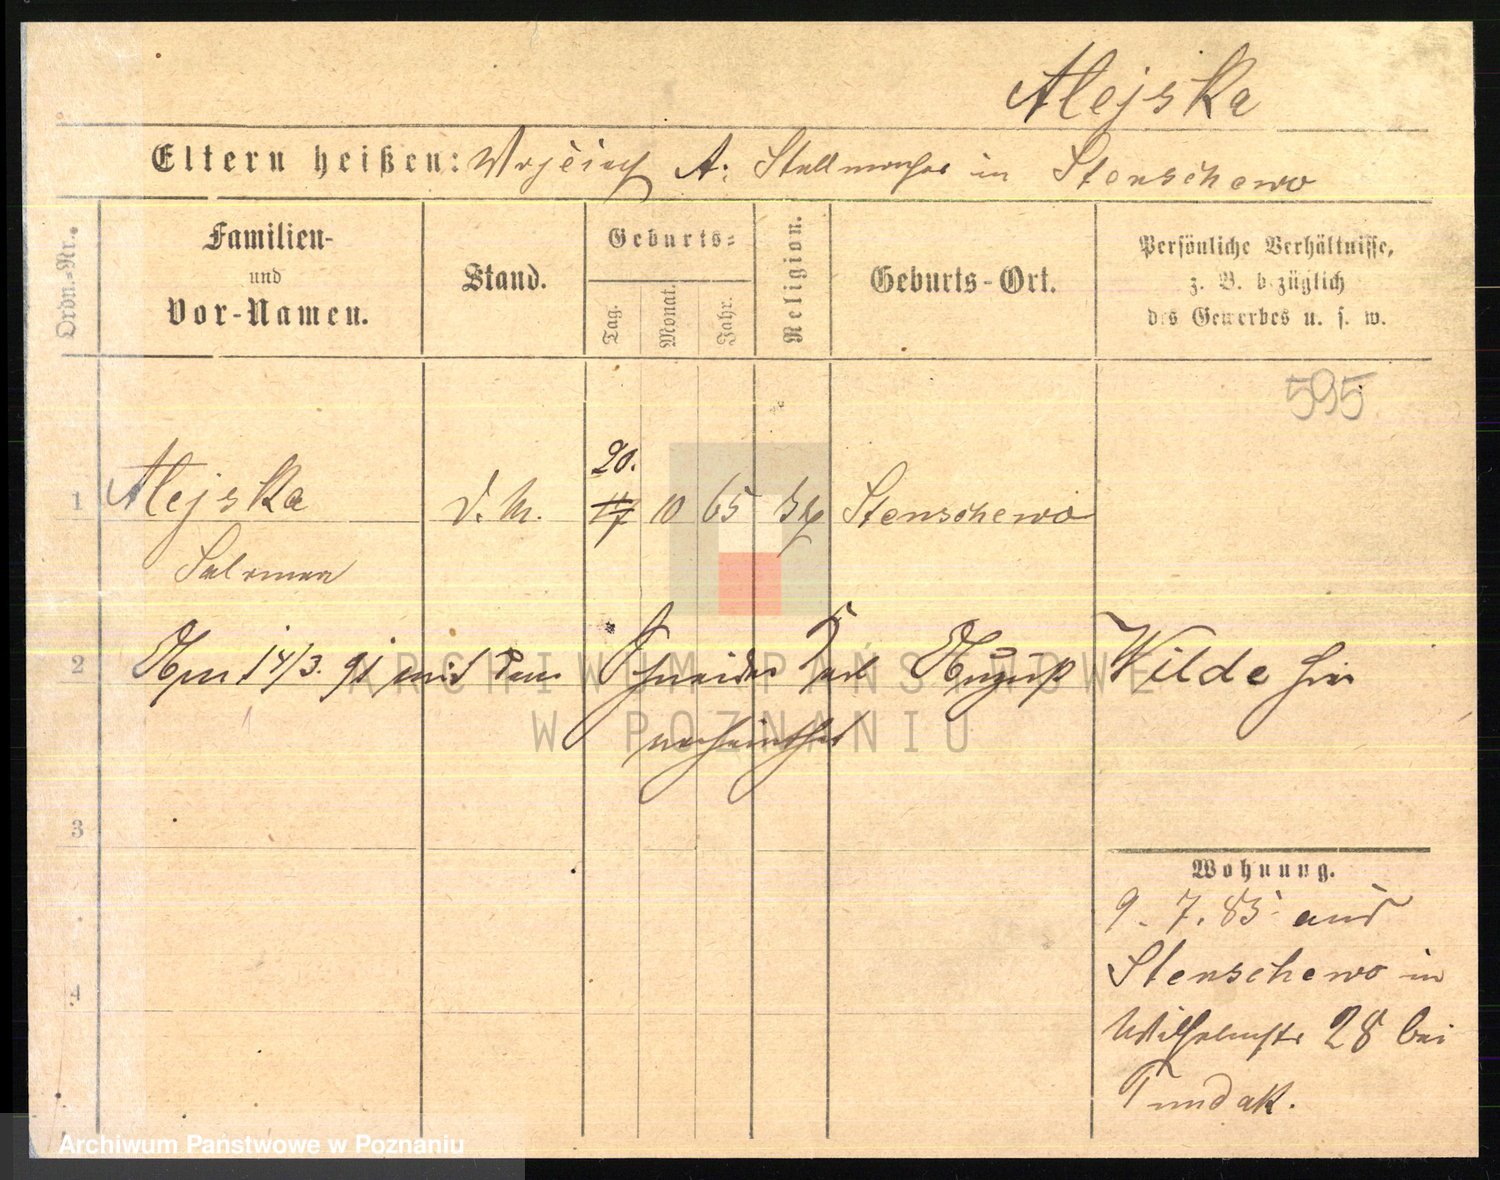 Alejska
Eltern heißen: Wojciech A; Stellmacher in Stenschewo
Ordn.-Nr.
Familien-
und
Vor-Namen.
Stand.
Geburts-
Tag.
Monat.
Jahr.
Religion.
Geburts-Ort.
Persönliche Verhältnisse,
z. B. bezüglich
des Gewerbes u. s. w.
595
20.
1 Alejska D. M. 17 10 65 kth Stenschewo
Salomea
2 Am 14/3. 91 mit dem Schneider Karl August Wilde hier
verheirathet
ARCHIWUM PAŃSTWOWE
W POZNANIU
3
Wohnung.
9. 7. 85 aus
Stenschewo in
4
Wilhelmstr 28 bei
Archiwum Państwowe w Poznaniu